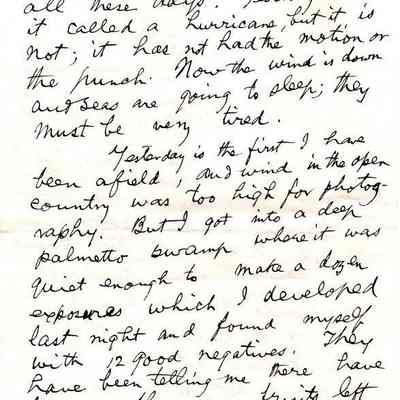 all these days.
it called a hurricane, but it is
not; it has not had the motion or
the punch. Now the wind is down
and seas are going to sleep; they
must be very tired.
Yesterday is the first I have
been afield, and wind in the open
country was too high for photog-
raphy. But I got into a deep
palmetto swamp where it was
quiet enough to make a dozen
exposures which I developed
last night and found myself
with 12 good negatives. They
have been telling me there have
left